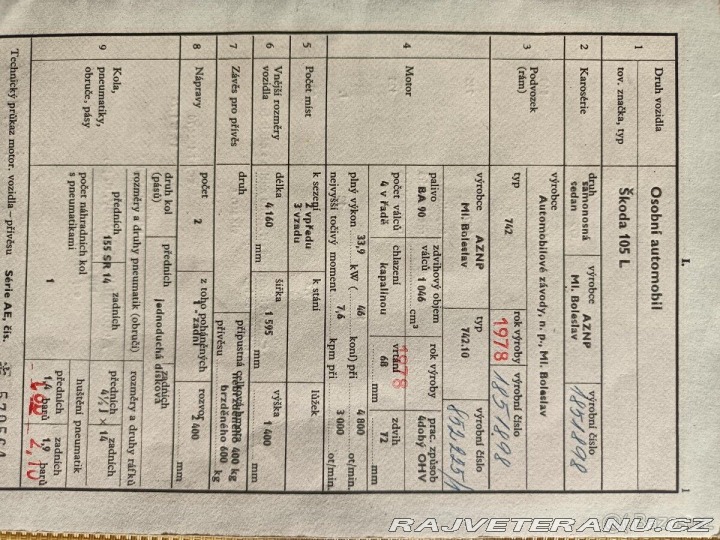 I.
1
1
Druh vozidla
tov. značka, typ
Osobní automobil
Škoda 105 L
2
Karosérie
druh
samonosná
sedan
výrobce
AZNP
Ml. Boleslav
výrobní číslo
1851898
3
Podvozek
(rám)
výrobce
Automobilové závody, n. p., Ml. Boleslav
typ
742
rok výroby
1978
výrobní číslo
1851898
4
Motor
výrobce
AZNP
Ml. Boleslav
typ
742.10
výrobní číslo
palivo
BA 90
zdvihový objem
válců 1 046 cm³
rok výroby
1978
prac. způsob
4dobý OHV
počet válců
4 v řadě
chlazení
kapalinou
vrtání
68
zdvih
72
mm
plný výkon 33,9 kW ( 46 koní) při 4 800 ot/min.
nejvyšší točivý moment 7,6 kpm při 3 000 ot/min.
5
Počet míst
k sezení
2 vpředu
3 vzadu
k stání
lůžek
6
Vnější rozměry
vozidla
délka
4 160 mm
šířka
1 595 mm
výška
1 400 mm
7
Závěs pro přívěs
druh
přípustná celková hmota
přívěsu
nebrzděného 400 kg
brzděného 600 kg
8
Nápravy
počet
2
z toho poháněných
1 - zadní
rozvor
2 400 mm
9
Kola,
pneumatiky,
obruče, pásy
druh kol
(pásů)
předních
zadních
jednoduchá disková
rozměry a druhy pneumatik (obručí)
předních
zadních
155 SR 14
rozměry a druhy ráfků
předních
zadních
4½ J × 14
počet náhradních kol
s pneumatikami
1
huštění pneumatik
předních
1,4 barů
zadních
1,9 barů
2,10
Technický průkaz motor. vozidla – přívěsu
Série AE, čís.
RAJVETERANU.CZ